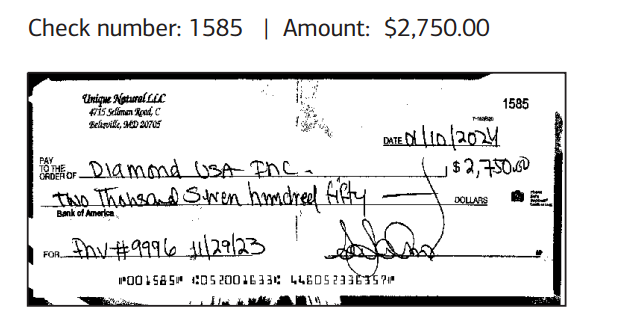 Check number: 1585 | Amount: $2,750.00
Unique Natural LLC
4715 Sellman Road, C
Beltsville, MD 20705
1585
DATE 01/10/2024
PAY
TO THE
ORDER OF Diamond USA Inc.
$ 2,750.00
Two Thohsand Seven hundred fifty
DOLLARS
Bank of America
FOR Inv #9996 11/29/23